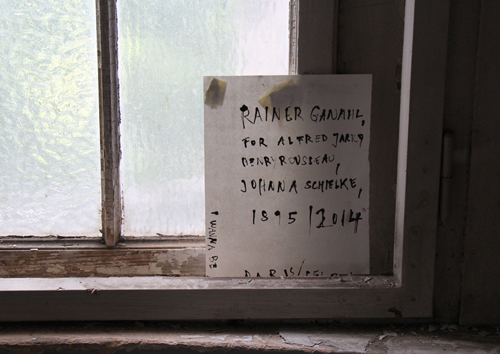 RAINER GANAHL,
FOR ALFRED JARRY
HENRY ROUSSEAU,
JOHANNA SCHIELKE,
1895/2014
I WANNA BE
PARIS/